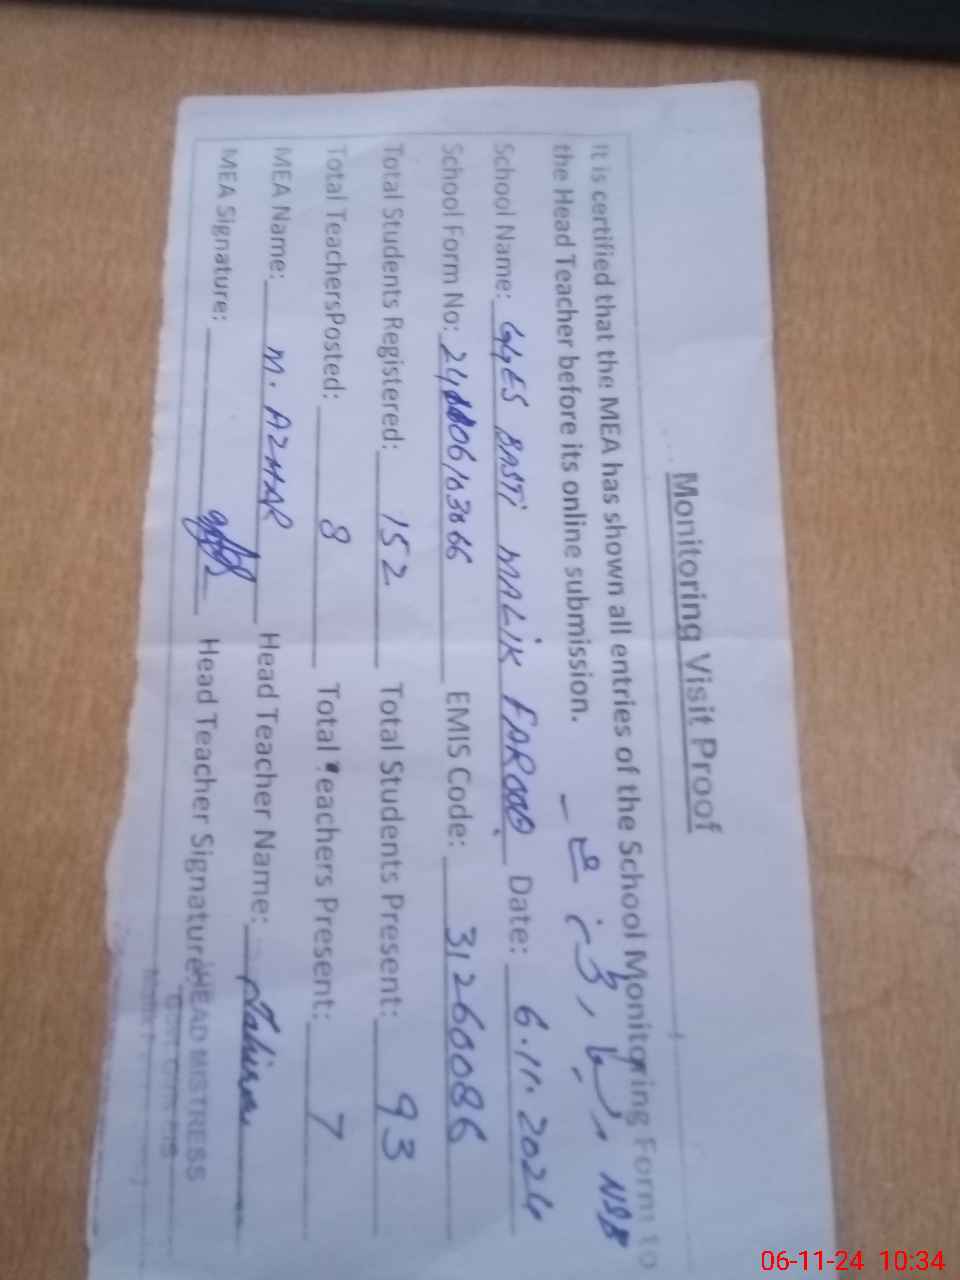 Monitoring Visit Proof
It is certified that the MEA has shown all entries of the School Monitoring Form to
the Head Teacher before its online submission.
NSB
School Name: GGES BASTI MALIK FAROOQ Date: 6.11.2024
School Form No: EMIS Code: 31260086
Total Students Registered: 152 Total Students Present: 93
Total TeachersPosted: 8 Total Teachers Present: 7
MEA Name: M. AZHAR Head Teacher Name: Tahira
MEA Signature: Head Teacher Signature:
HEAD MISTRESS
06-11-24 10:34